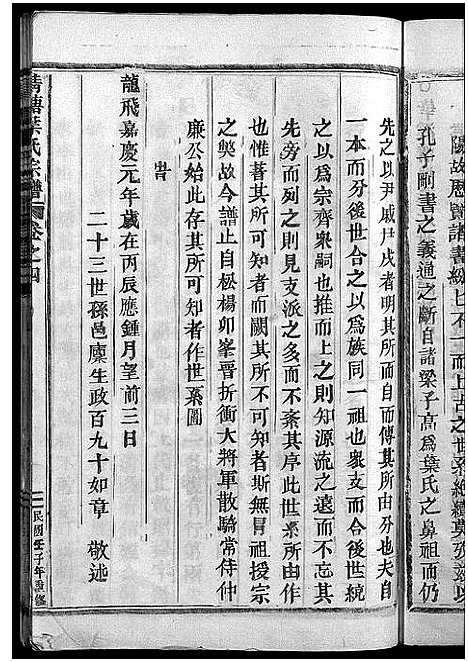 陽故歷賢譜書綜上不一而上古之世系綿纘莫
孔子刪書之義通之斷自諸梁子高爲葉氏之鼻祖而仍
先之以尹戌尸戌者明其所而自而傳其所由分也夫自
一本而分後世合之以爲族同一祖也衆支而合後世統
之以爲宗齊衆嗣也推而上之則知源流之遠而下而
先旁而列之則見支派之多而不紊其序此世系所由貴
也惟著其所可知者而闕其所不可知者斯無冒祖授宗
之獘故今譜止自松楊卯峯晉折衝大將軍散騎常侍仲
廉公始此存其所可知者作世系圖
旹
龍飛嘉慶元年歲在丙辰應鍾月望前三日
二十三世孫邑廩生政百九十如章 敬述
清塘葉氏宗譜 卷之四
民國壬子年重修